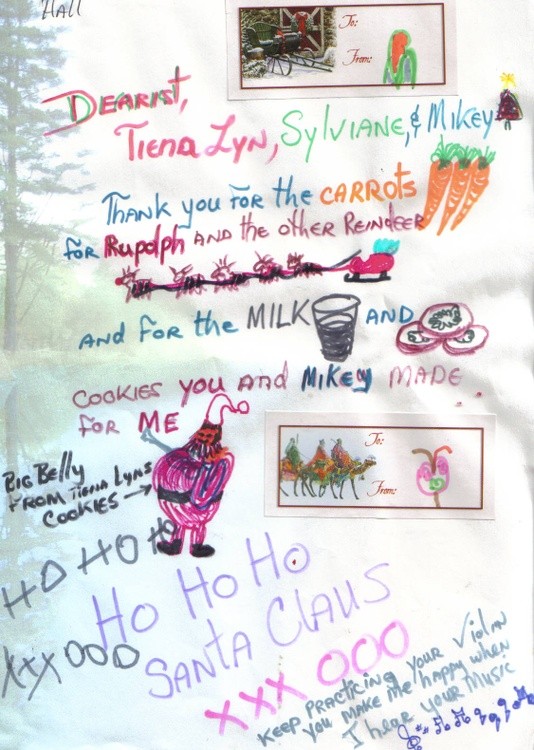 Hall
To:
From:
Dearest,
Tiena Lyn, Sylviane, & Mikey
Thank you for the CARROTS
for Rudolph AND the other Reindeer
AND for the MILK AND
COOKIES you AND Mikey MADE
for ME
To:
From:
BIG BELLY
FROM Tiena Lyns
COOKIES →
HO HO HO
HO HO HO
SANTA CLAUS
XXX OOO
XXX OOO
KEEP PRACTICING YOUR Violin
you make me happy when
I hear your Music